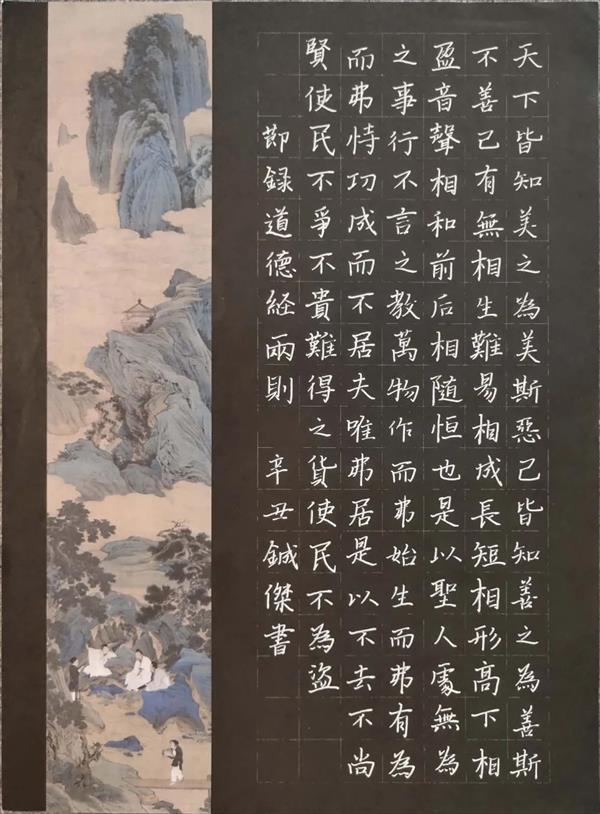 天下皆知美之為美斯惡已皆知善之為善斯
不善已有無相生難易相成長短相形高下相
盈音聲相和前后相隨恒也是以聖人處無為
之事行不言之教萬物作而弗始生而弗有為
而弗恃功成而不居夫唯弗居是以不去不尚
賢使民不爭不貴難得之貨使民不為盜
節録道德経兩則 辛丑鋮傑書